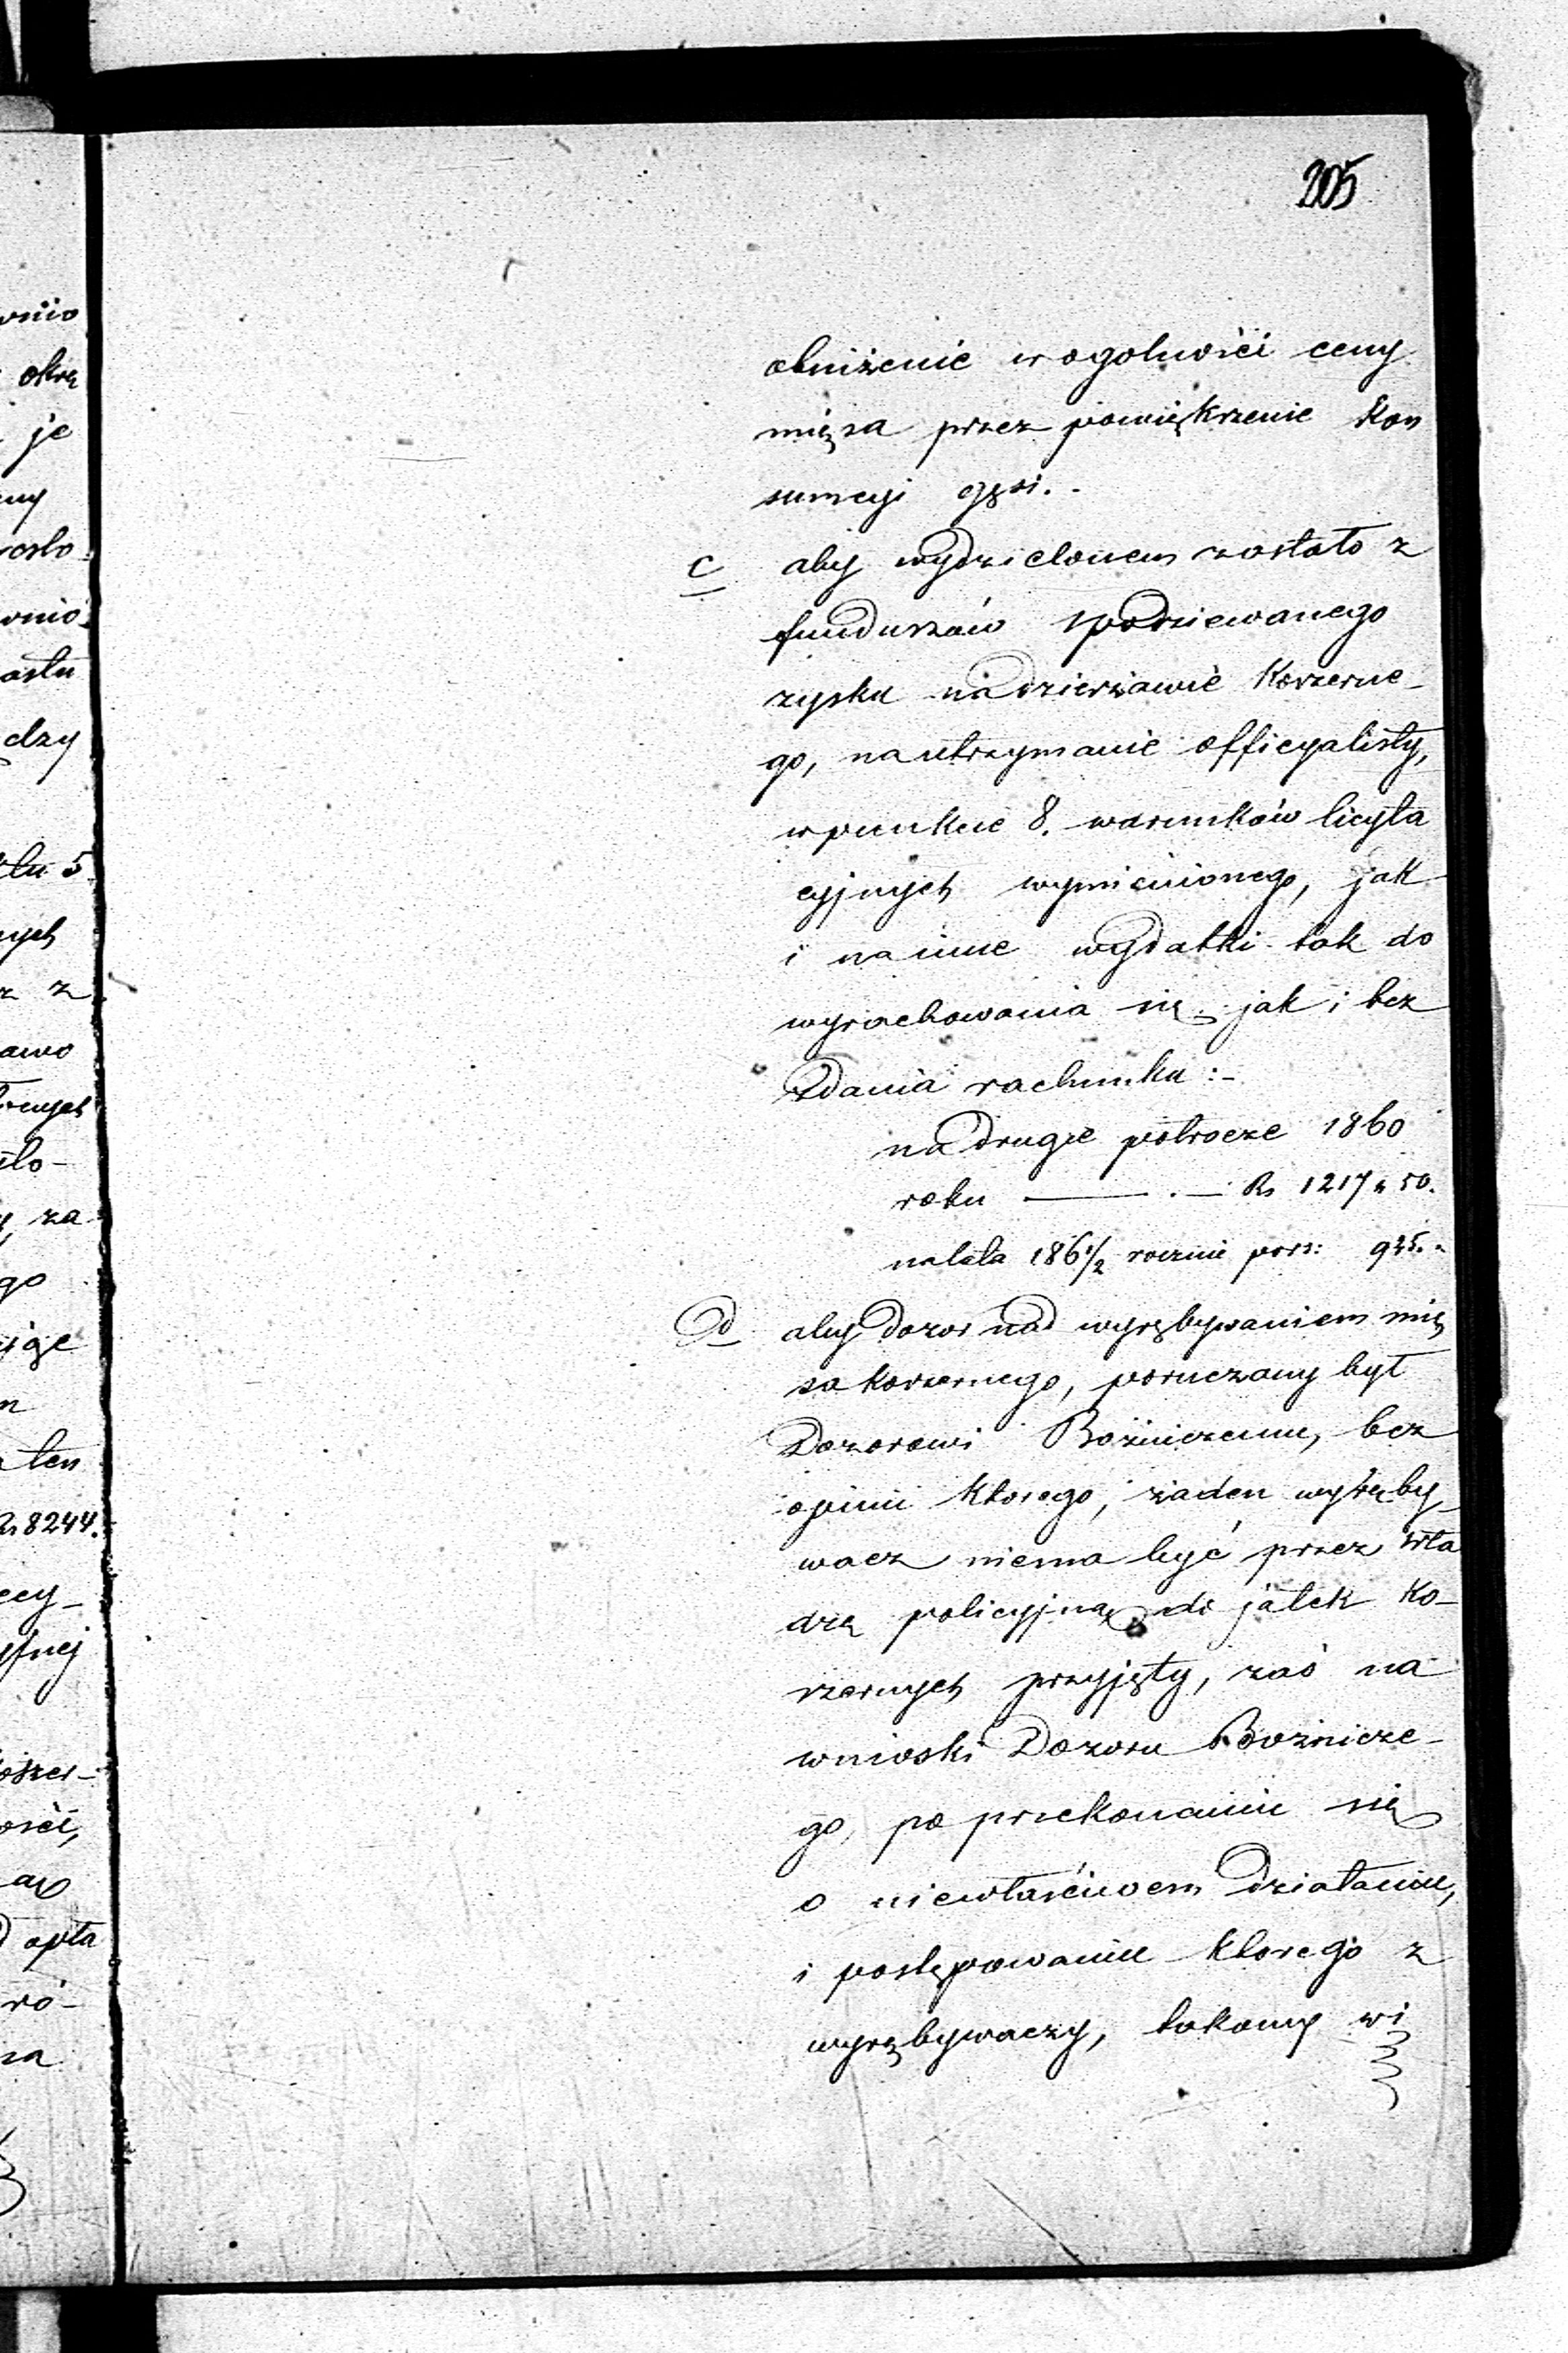 205
obniżenie w ogolności ceny
mięsa przez powiększenie kon
sumcyi gęsi.-
c aby wydzielonem zostało z
funduszów spodziewanego
zysku na dzierżawie Koszerne-
go, na utrzymanie officyalisty,
w punkcie 8. warunków licyta
cyjnych wymienionego, jak
i na inne wydatki tak do
wyrachowania się jak i bez
zdania rachunku:-
na drugie półrocze 1860
roku Rs 1217 k 50.
na lata 186½ rocznie
d aby dozor nad wyrębywaniem mię
sa koszernego, poruczany był
Dozorowi Bożniczemu, bez
opinii ktorego, żaden wyręby-
wacz niema być przez wła
dzę policyjną do jatek ko-
szernych przyjęty, zaś na
wnioski Dozoru Bożnicze-
go, po przekonaniu się
o niewłaściwem działaniu,
i postępowaniu ktorego z
wyrębywaczy, takowy wi
wnio
okrę
je
ny
wnio
astu
dzy
5
nych
z
awo
za
go
ten
Rs 8244.
cy-
ości,
opła
ró-